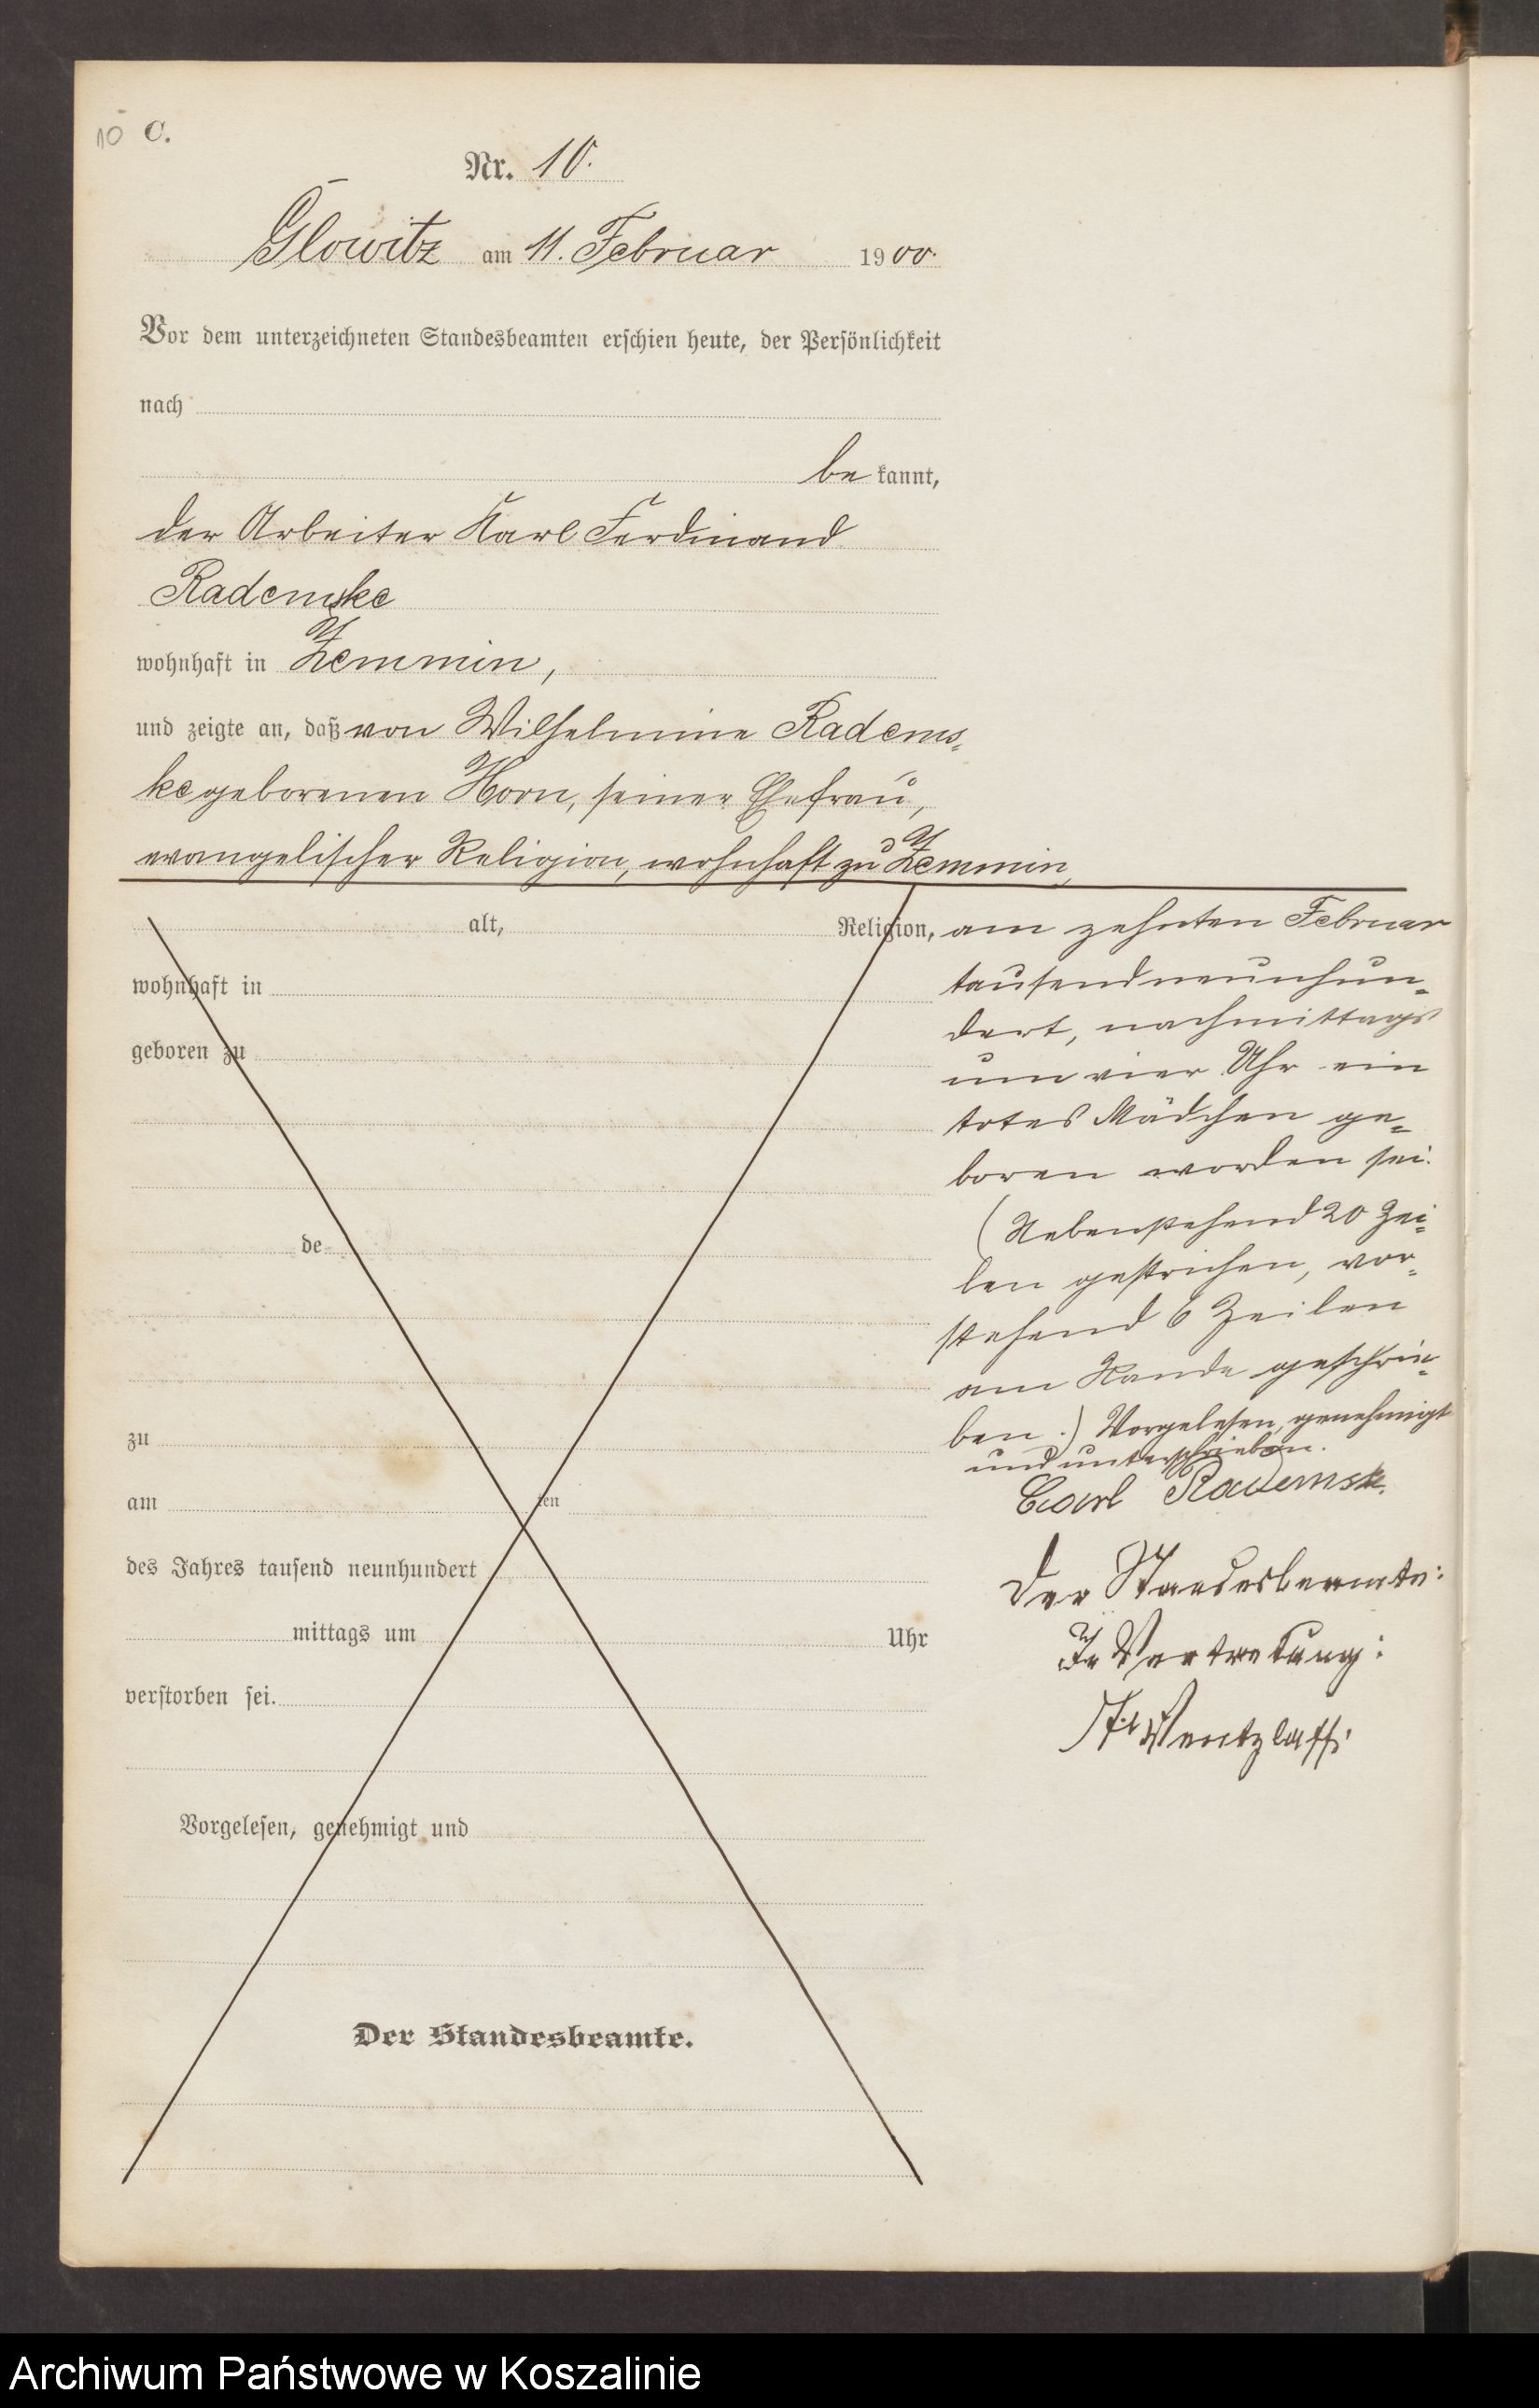 10
C.
Nr. 10.
Glowitz am 11. Februar 1900.
Vor dem unterzeichneten Standesbeamten erschien heute, der Persönlichkeit
nach
be kannt,
der Arbeiter Karl Ferdinand
Rademske
wohnhaft in Zemmin,
und zeigte an, daß von Wilhelmine Radems-
ke geborenen Horn, seiner Ehefrau,
evangelischer Religion, wohnhaft zu Zemmin,
alt, Religion,
wohnhaft in
geboren zu
de
zu
am ten
des Jahres tausend neunhundert
mittags um Uhr
verstorben sei.
Vorgelesen, genehmigt und
Der Standesbeamte.
am zehnten Februar
tausendneunhun-
dert, nachmittags
um vier Uhr ein
totes Mädchen ge-
boren worden sei.
(Nebenstehend 20 Zei-
len gestrichen, vor-
stehend 6 Zeilen
am Rande geschrie-
ben.) Vorgelesen, genehmigt
und unterschrieben.
Carl Rademske.
Der Standesbeamte:
In Vertretung:
Wentzlaff.
Archiwum Państwowe w Koszalinie